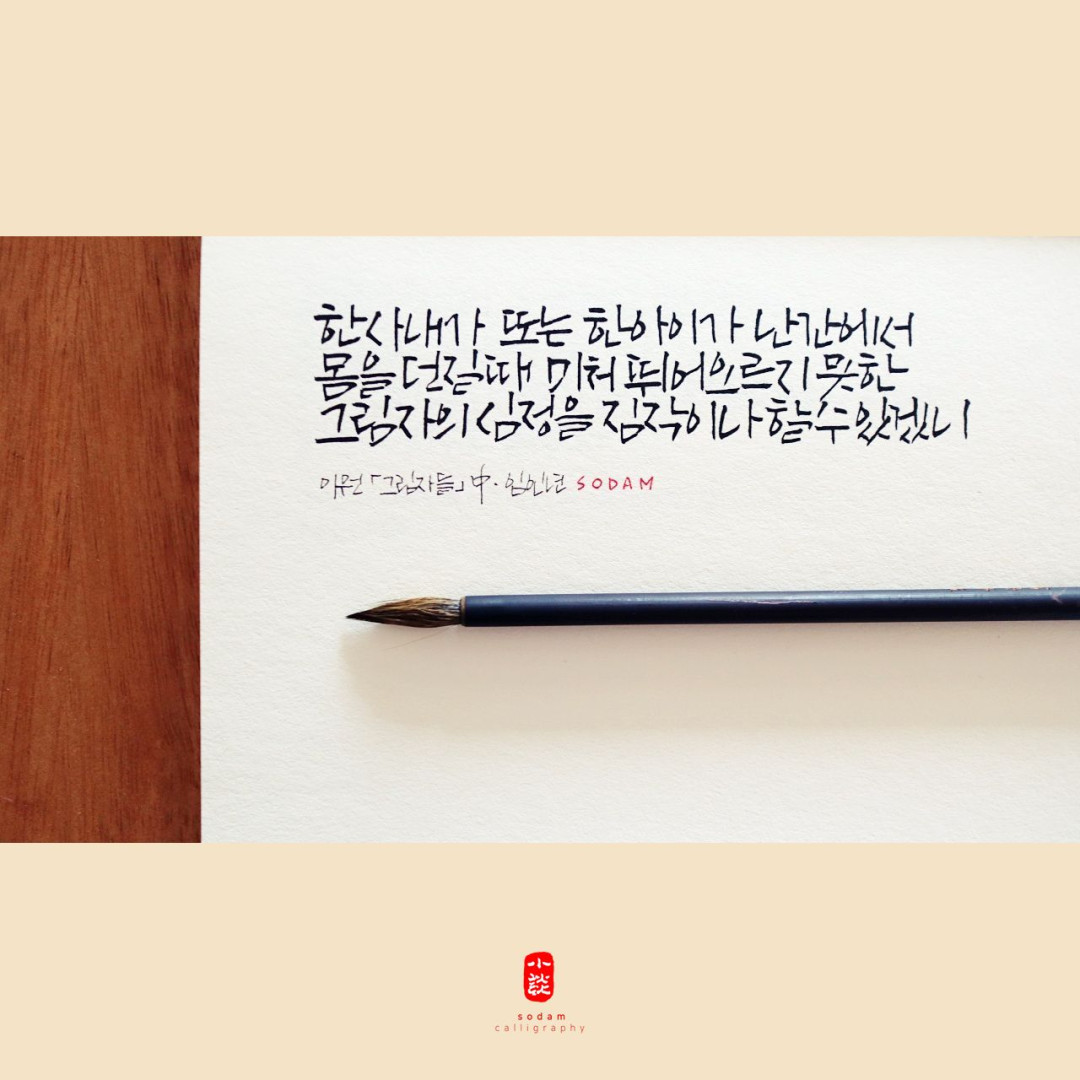 한 사내가 또는 한 아이가 난간에서
몸을 던질 때 미처 뛰어오르지 못한
그림자의 심정을 짐작이나 할 수 있겠니
이원 「그림자들」 中 · 임인년 SODAM
小談
sodam
calligraphy